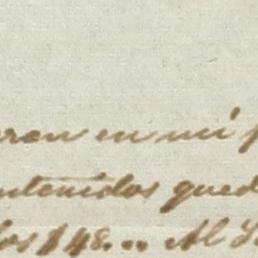 ron en mi p
ntenidos qued
los $48... Al S